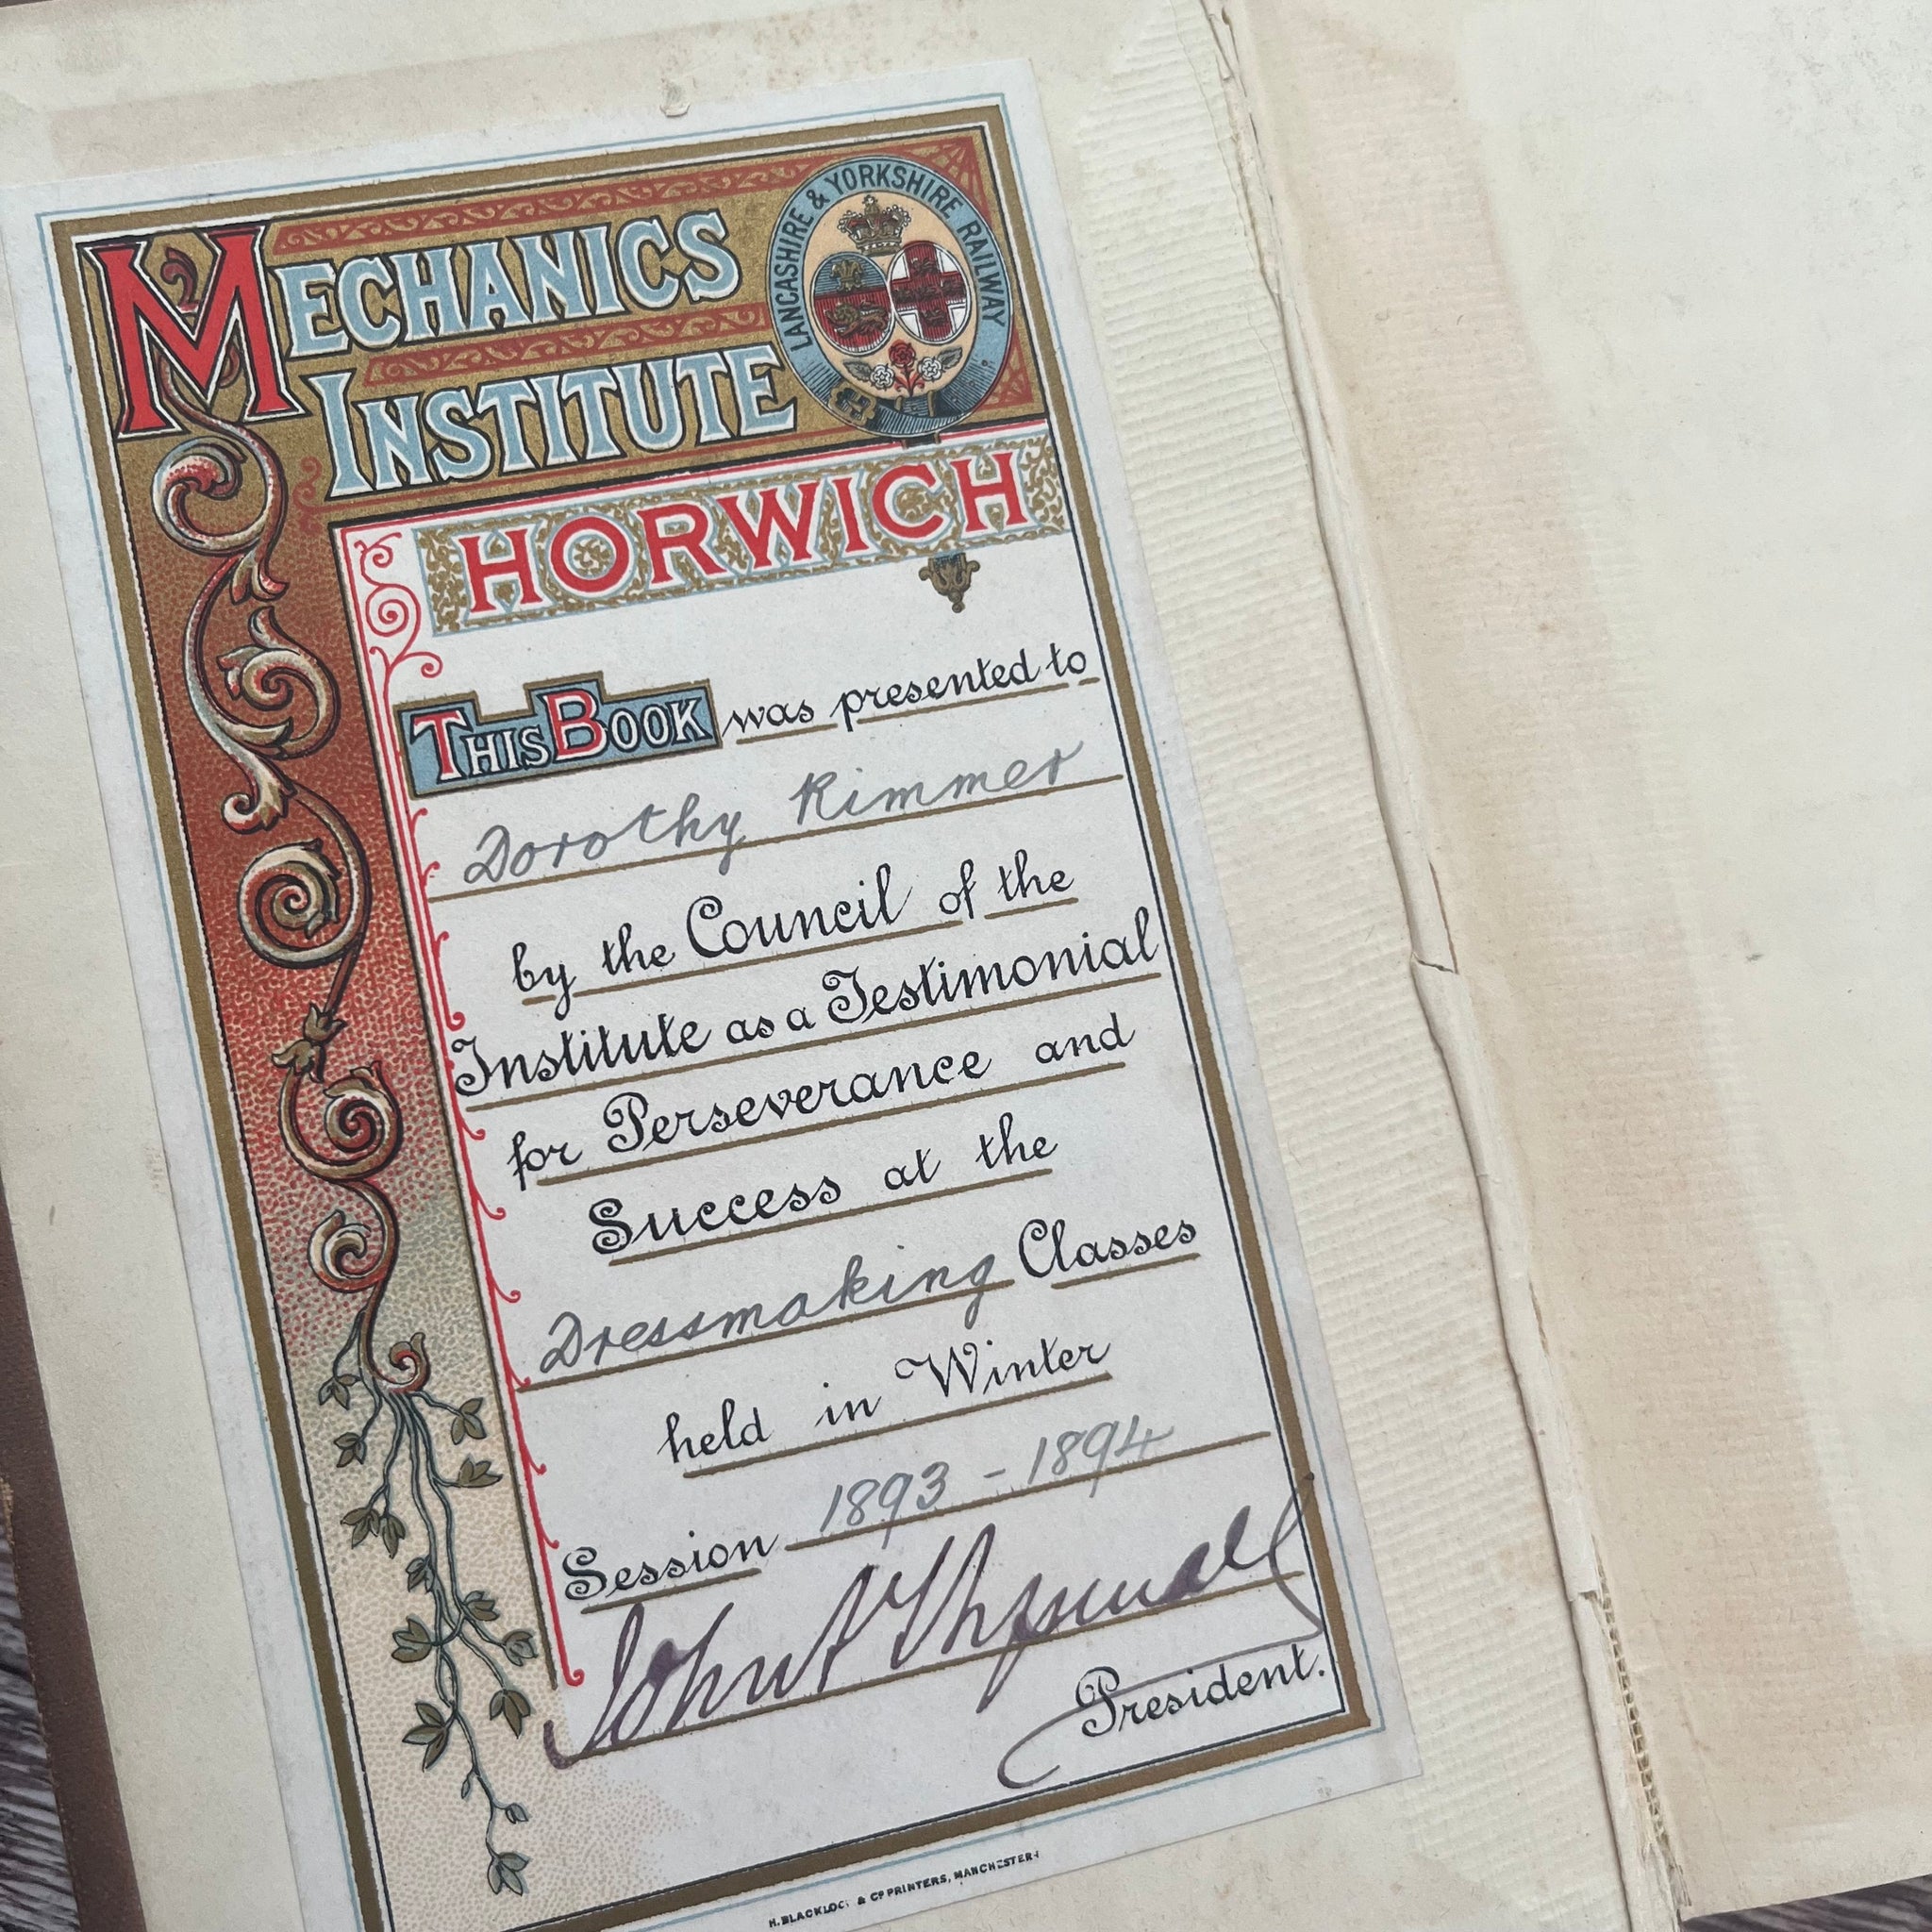 MECHANICS
INSTITUTE
LANCASHIRE & YORKSHIRE RAILWAY
HORWICH
THIS BOOK was presented to
Dorothy Rimmer
by the Council of the
Institute as a Testimonial
for Perseverance and
Success at the
Dressmaking Classes
held in Winter
Session 1893 - 1894
John A
President.
H. BLACKLOCK & CO PRINTERS, MANCHESTER